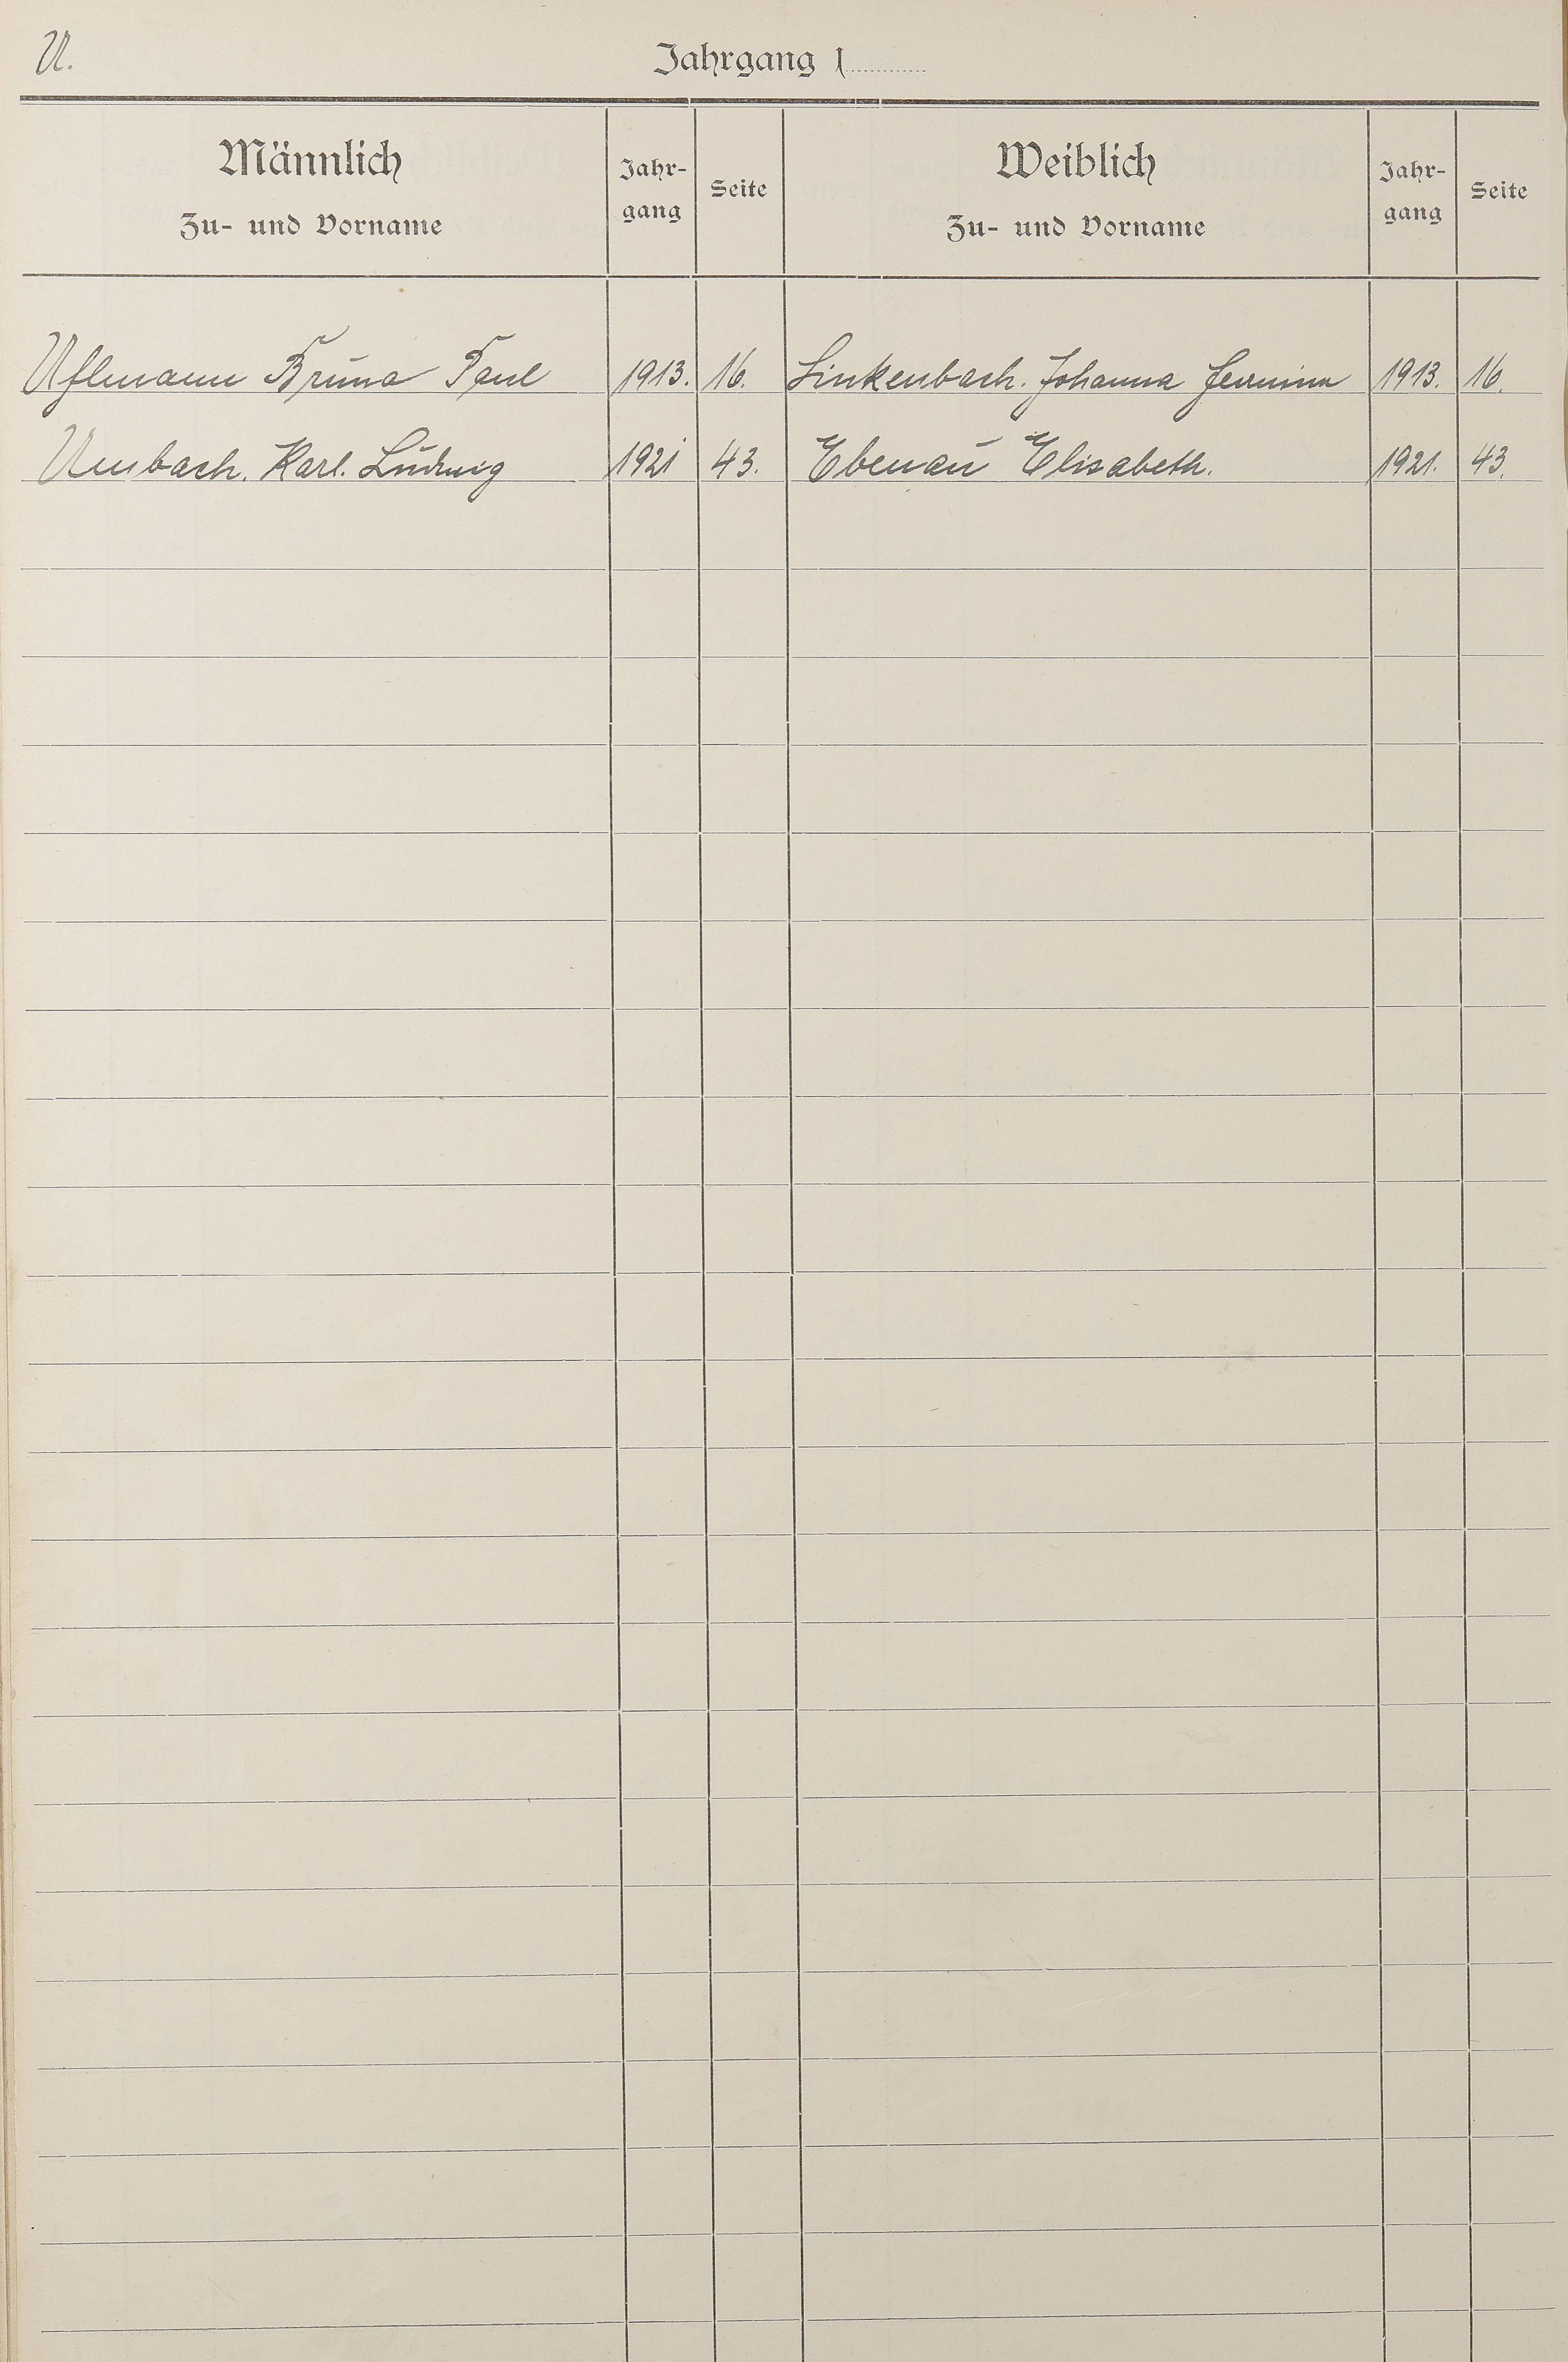 U.
Jahrgang 1
Männlich
Zu- und Vorname
Jahr-
gang
Seite
Weiblich
Zu- und Vorname
Jahr-
gang
Seite
Uflmann Bruno Paul 1913. 16. Linkenbach. Johanna 1913. 16.
Umbach. Karl. Ludwig 1921 43. Ebenau Elisabeth. 1921. 43.